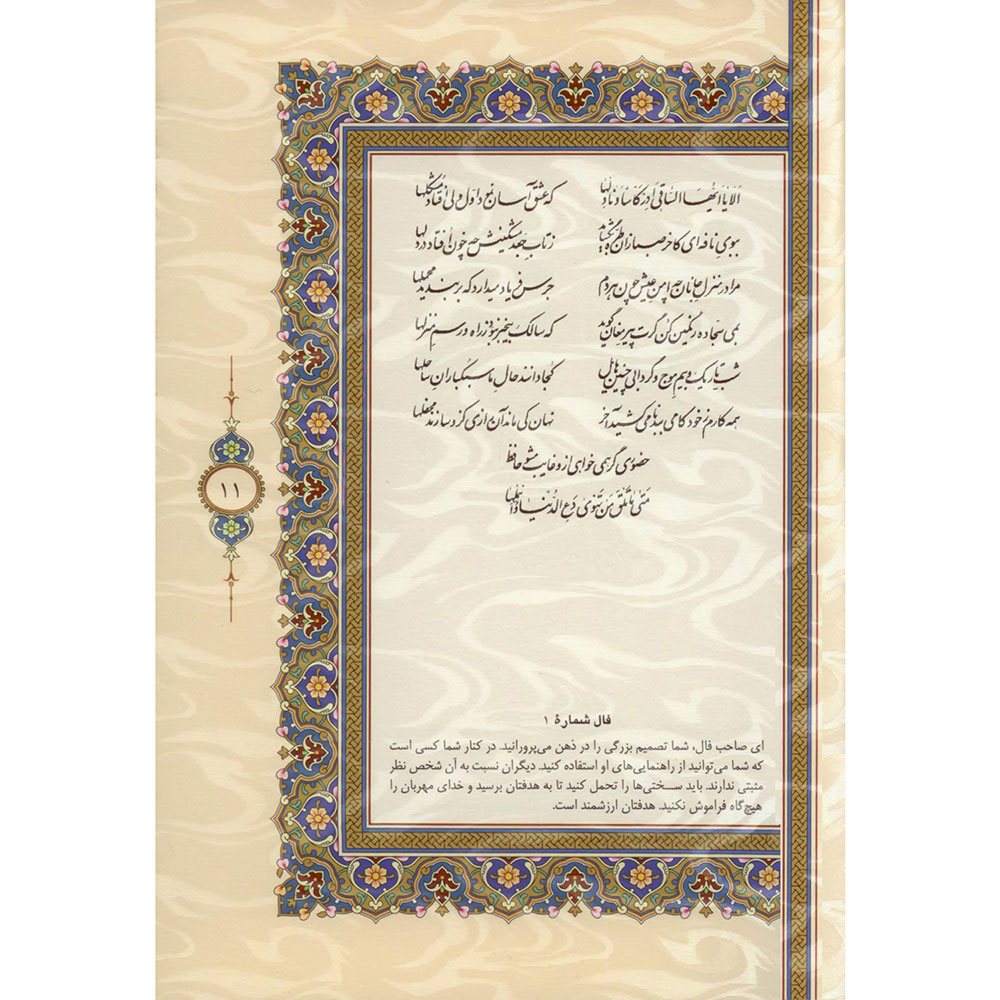 الا یا ایها الساقی ادر کاسا و ناولها که عشق آسان نمود اول ولی افتاد مشکلها
ببوی نافه‌ای کاخر صبا زان طره بگشاید ز تاب جعد مشکینش چه خون افتاد در دلها
مرا در منزل جانان چه امن عیش چون هر دم جرس فریاد میدارد که بربندید محملها
بمی سجاده رنگین کن گرت پیر مغان گوید که سالک بیخبر نبود ز راه و رسم منزلها
شب تاریک و بیم موج و گردابی چنین هایل کجا دانند حال ما سبکباران ساحلها
همه کارم ز خود کامی ببدنامی کشید آخر نهان کی ماند آن رازی کزو سازند محفلها
حضوری گر همی خواهی ازو غایب مشو حافظ
متی ما تلق من تهوی دع الدنیا و اهملها
۱۱
فال شمارهٔ ۱
ای صاحب فال، شما تصمیم بزرگی را در ذهن می‌پرورانید. در کنار شما کسی است
که شما می‌توانید از راهنمایی‌های او استفاده کنید. دیگران نسبت به آن شخص نظر
مثبتی ندارند. باید سختی‌ها را تحمل کنید تا به هدفتان برسید و خدای مهربان را
هیچ‌گاه فراموش نکنید. هدفتان ارزشمند است.